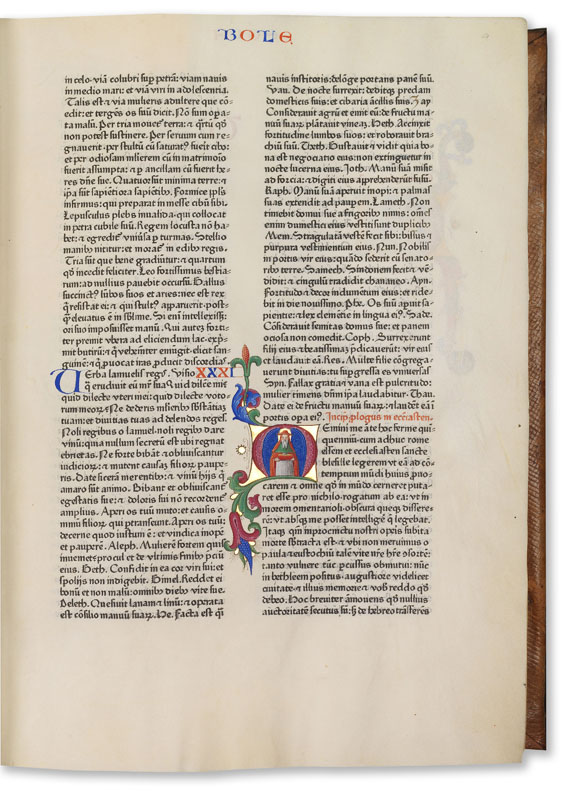 BOLE
in celo· viā colubri sup petrā: viam nauis
in medio mari: et viā viri in adolescentia.
Talis est ⁊ via mulieris adultere que cō⸗
edit: et tergēs os suū dicit. Nō sum opa⸗
ta malū. Per tria mouet᷑ terra: ⁊ q̄rtū qd̓
non potest sustinere. Per seruum cum re⸗
gnauerit· per stultū cū saturat᷑ fuerit cibo:
et per odiosam mlierem cū in matrimoīo
fuerit assumpta: ⁊ p ancillam cū fuerit he⸗
res dn̄e sue. Quatuor sūt minima terre: ⁊
ipa sūt sapiētiora sapiētibꝫ. Formice ppls
infirmus: qui preparat in messe cibū sibi.
Lepusculus plebs inualida· q̄ collocat
in petra cubile suū. Regem locusta nō ha⸗
bet: ⁊ egredit᷑ vniūsa p turmas. Stellio
manibꝫ nititur: et morat᷑ in edibꝫ regis.
Tria sūt que bene gradiūtur: ⁊ quartum
qd̓ incedit feliciter. Leo fortissimus bestia⸗
rum: ad nullius pauebit occursū. Gallus
succinct᷑ lūbos suos et aries: nec est rex
q̇ resistat ei: ⁊ qui stult᷑ apparuerit· post⸗
q̄ eleuatus ē in sublime. Si eni intellexiss:
ori suo imposuisset manū. Qui autē forti⸗
ter premit vbera ad eliciendum lac· exp̄⸗
mit butirū: ⁊ q̇ vehemēter emūgit· elicit san⸗
guinē: ⁊ q̇ puocat iras pducit discordias.
Verba lamuelis regis. Visio XXXI
q̄ erudiuit eū mr̄ sua. Quid dilcē mi:
quid dilecte vteri mei: quid dilecte voto⸗
rum meorꝫ. Ne dederis mlieribꝫ sbstātiā
tuam: et diuitias tuas ad delendos reges.
Noli regibus o lamuel· noli regibꝫ dare
vinū: quia nullum secretū est vbi regnat
ebrietas. Ne forte bibāt ⁊ obliuiscantur
iudiciorꝫ: ⁊ mutent causā filiorꝫ paupe⸗
ris. Date sicerā merentibꝫ: ⁊ vinū hijs q̇
amaro sūt animo. Bibant et obliuiscant᷑
egestatis sue: ⁊ doloris sui nō recordent᷑
amplius. Aperi os tuū muto: et causis o⸗
mniū filiorꝫ qui ptranseunt. Aperi os tuū:
decerne quod iustum ē: et vindica inopē
et pauperē. Aleph. Mulierē fortem quis
inueniet· procul et de vltimis finibꝫ pciū
eius. Beth. Confidit in ea cor viri sui: et
spolijs non indigebit. Gimel. Reddet ei
bonū et non malū: omnibꝫ diebꝫ vite sue.
Deleth. Quesiuit lanam ⁊ linū: ⁊ operata
est cōsilio manuū suarꝫ. He. Facta est q̄si
nauis institoris: delōge portans panē suū.
Vau. De nocte surrexit: deditqꝫ predam
domesticis suis: et cibaria ācillis suis. Zay
Considerauit agrū et emit eū: de fructu ma⸗
nuū suarꝫ plātauit vineā. Heth. Accinxit
fortitudīe lumbos suos: et roborauit bra⸗
chiū suū. Theth. Gustauit ⁊ vidit quia bo⸗
na est negociatio eius: non extinguetur in
nocte lucerna eius. Ioth. Manū suā misit
ad forcia: ⁊ digiti eius apprehenderūt fusū.
Caph. Manū suā aperuit inopi: ⁊ palmas
suas extendit ad paupem. Lameth. Non
timebit domui sue a frigoribꝫ niuis: om̄es
enim domestici eius vestiti sunt duplicibꝫ
Mem. Stragulatā vestē fecit sibi: bissus ⁊
purpura vestimentum eius. Nun. Nobilis
in portis vir eius: quādo sederit cū senato⸗
ribꝫ terre. Samech. Sindonem fecit ⁊ vē⸗
didit: ⁊ cingulū tradidit chananeo. Ayn.
Fortitudo ⁊ decor indumētum eius: et ride⸗
bit in die nouissimo. Phe. Os suū apuit sa⸗
piētie: ⁊ lex clemētie in lingua ei᷑. Sade.
Cōsiderauit semitas domus sue: et panem
ociosa non comedit. Coph. Surrexerunt
filij eius ⁊ beatissimā p̄dicauerūt: vir eius
et laudauit eā. Res. Multe filie cōgrega⸗
uerunt diuitias: tu supgressa es vniuersas
Syn. Fallax gratia ⁊ vana est pulcritudo:
mulier timens dn̄m ipa laudabitur. Thau.
Date ei de fructu manuū suarꝫ: ⁊ laudēt eā ī
portis opa ei᷑. Incip· plogus in ecciasten.
Memini me āte hoc ferme qui⸗
quennium· cum adhuc rome
essem et ecclesiasten sancte
blesille legerem vt eā ad cō⸗
temptum mūdi huius puo⸗
carem ⁊ omne qd̓ in mūdo cerneret puta⸗
ret esse pro nichilo· rogatum ab ea: vt in
morem omentarioli· obscura queqꝫ dissere⸗
rē: vt absqꝫ me posset intelligē q̄ legebat.
Itaqꝫ qm̄ in procinctu nostri opis subita
morte sbtracta est· ⁊ vbi non meruimus o
paula ⁊ eustochiū talē vite nr̄e hr̄e ɔsortē:
tanto vulnere tūc pcussus obmutui: nūc
in bethleem positus· augustiore videlicet
ciuitate· ⁊ illius memorie ⁊ vob̓ reddo qd̓
debeo. Hoc breuiter āmonens qd̓ nullius
auctoritatē secutus sū: sꝫ de hebreo trāsferēs